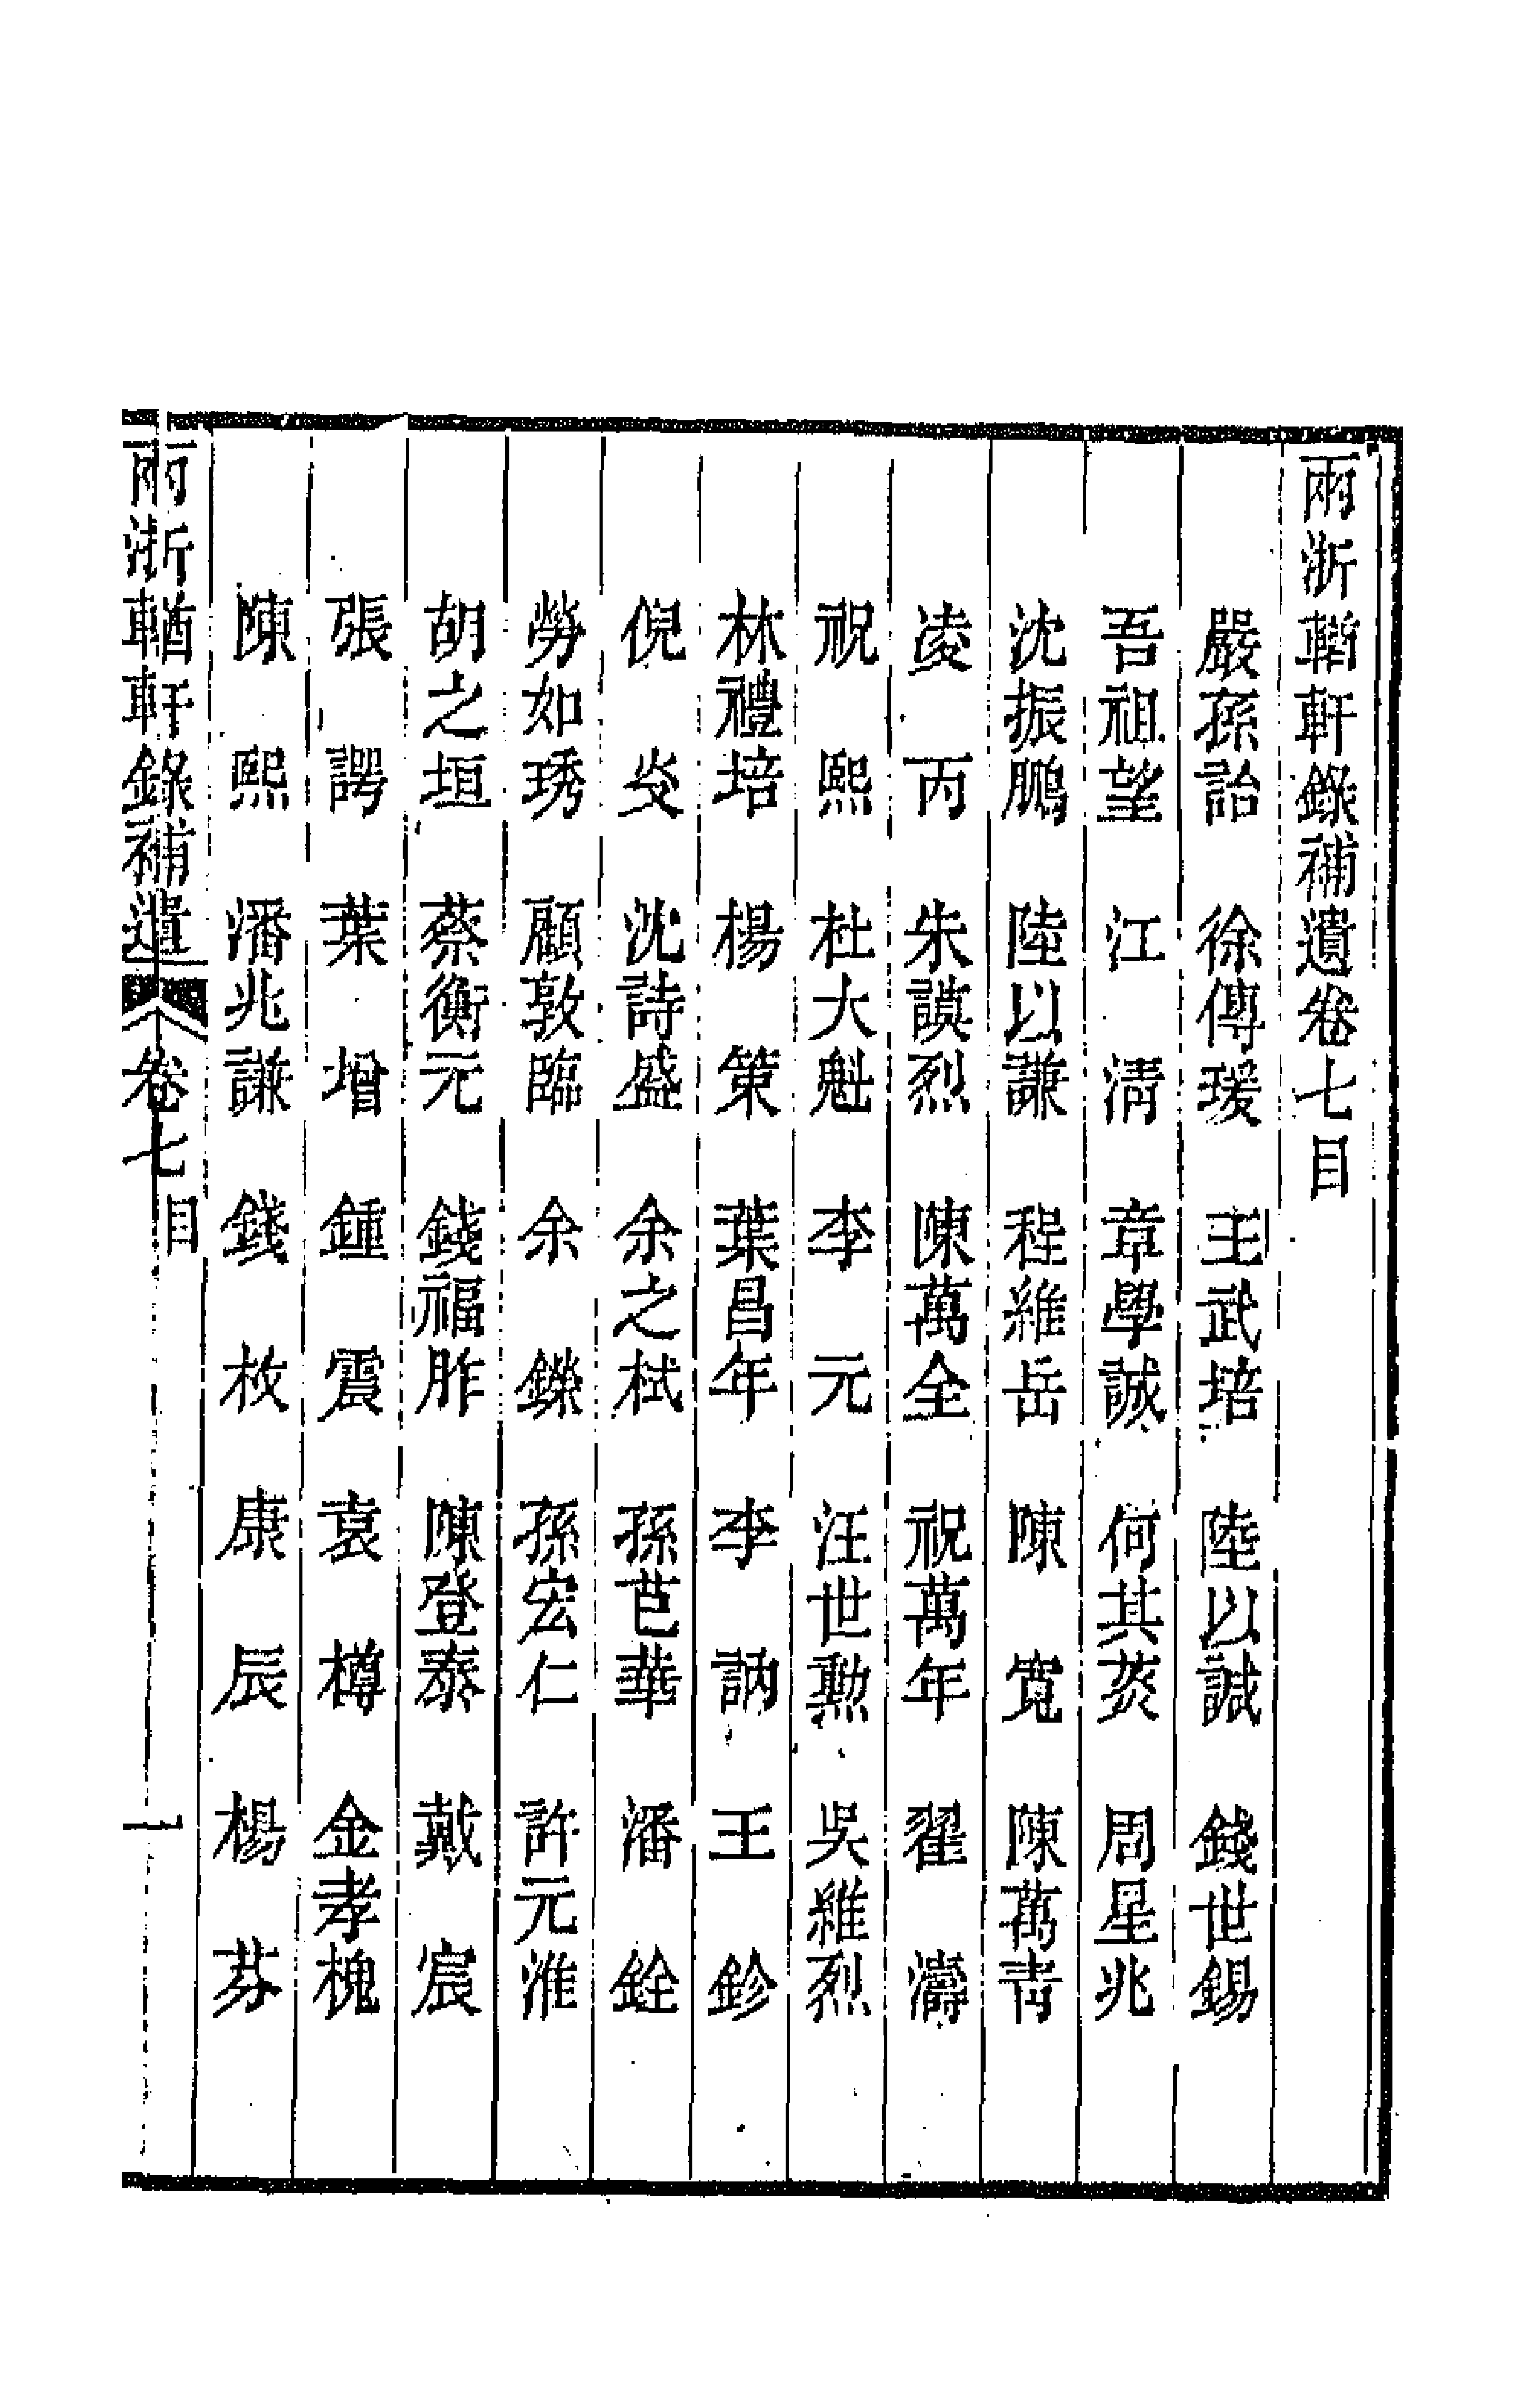 兩浙輶軒錄補遺卷七目
嚴孫詒　徐傳瑗　王武培　陸以諴　錢世錫
吾祖望　江　淸　章學誠　何其菼　周星兆
沈振鵬　陸以謙　程維岳　陳　寬　陳萬靑
凌　丙　朱謨烈　陳萬全　祝萬年　翟　濤
祝　熙　杜大魁　李　元　汪世勲　吳維烈
林禮培　楊　策　葉昌年　李　訥　王　鉁
倪　炎　沈詩盛　余之栻　孫芑華　潘　銓
勞如琇　顧敦臨　余　鑅　孫宏仁　許元淮
胡之垣　蔡衡元　錢福胙　陳登泰　戴　宸
張　諤　葉　增　鍾　震　袁　樽　金孝槐
陳　熙　潘兆謙　錢　枚　康　辰　楊　芬
兩浙輶軒錄補遺　卷七目　一